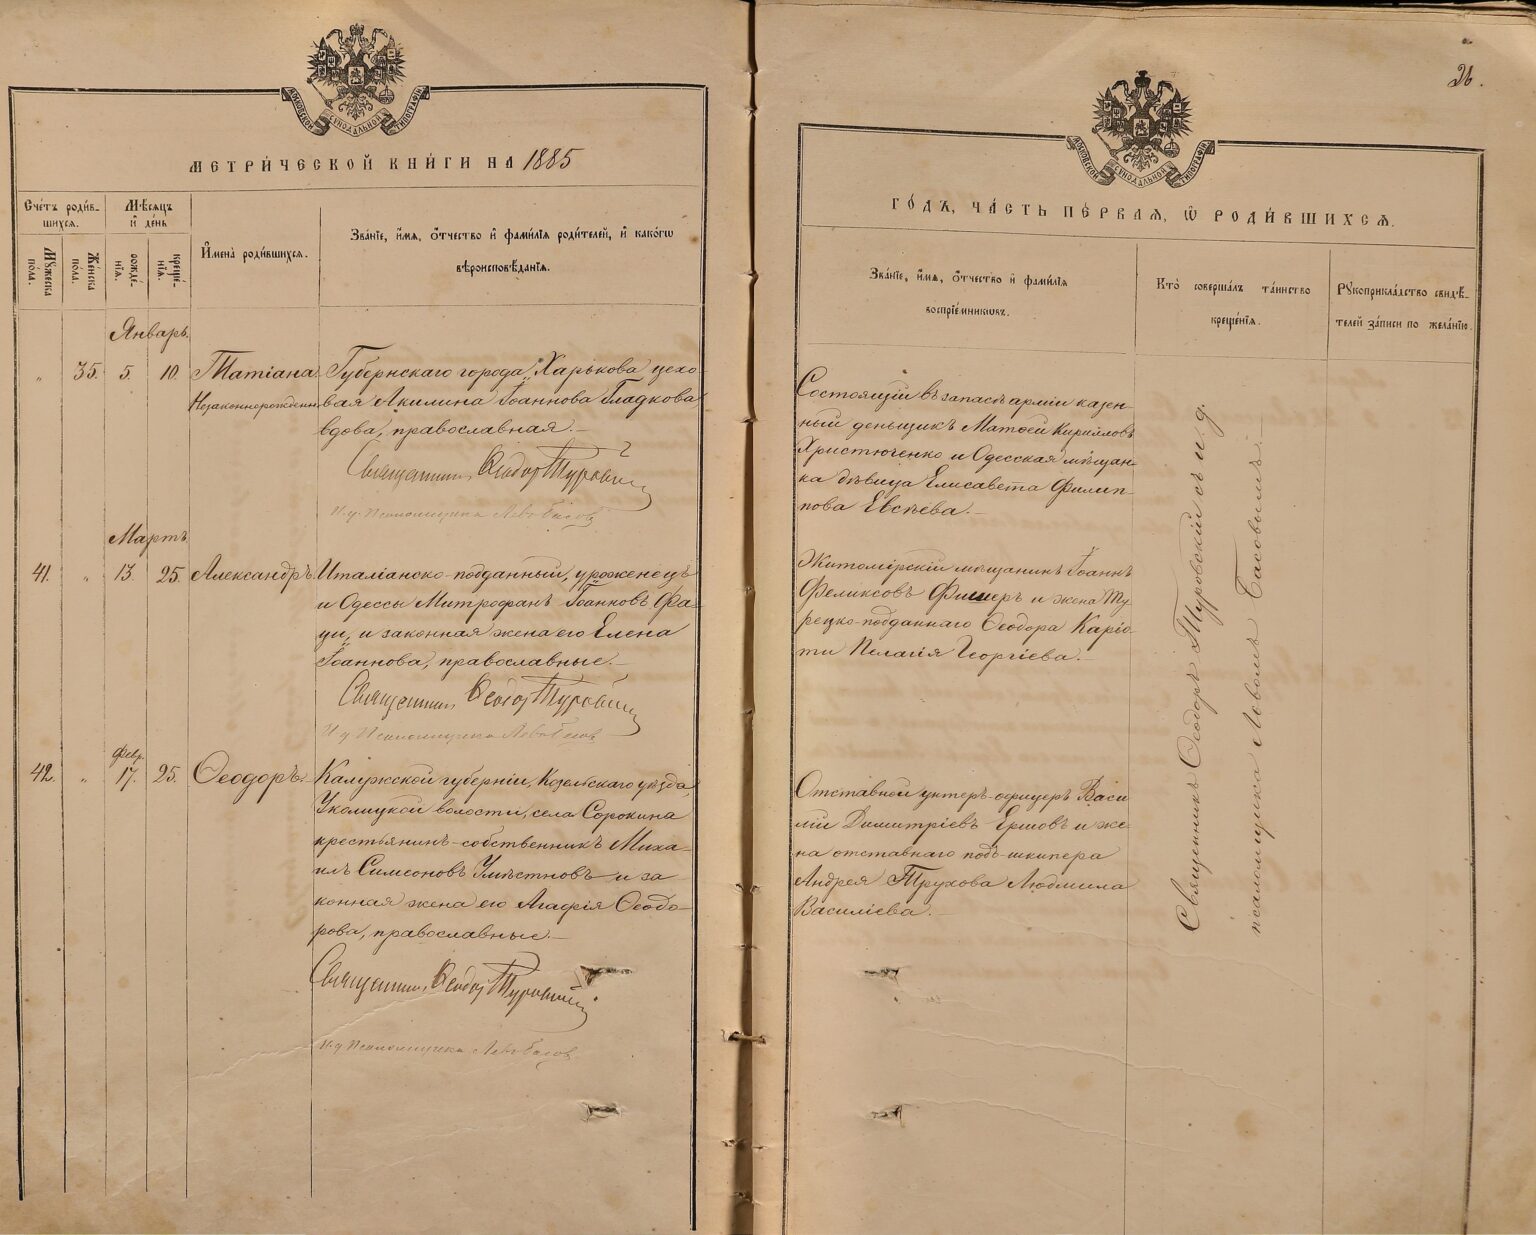 МОСКОВСКОЙ СѴНОДАЛЬНОЙ ТИПОГРАФІИ
МЕТРИ́ЧЕСКОЙ КНИ́ГИ НА 1885
Сче́тъ роди́в-
шихся.
Мѣ́сяцъ
и҆ де́нь
Мꙋ́жеска
по́ла.
Же́нска
по́ла.
рожде́-
нїя.
креще́-
нїя.
И҆мена̀ роди́вшихся.
Зва́нїе, и҆́мя, ѻ҆́тчество и҆ фами́лїя роди́телей, и҆ како́гѡ
вѣроисповѣ́данїя.
Январь.
„ 35. 5. 10. Татіана
Незаконнорожденн.
Губернскаго города Харькова цехо
вая Акилина Іоаннова Гладкова
вдова, православная.—
Священникъ Ѳеодоръ Туровскій
И. д. Псаломщика Левъ Басовъ
Мартъ
41. „ 13. 25. Александръ.
Италіанско-подданный, уроженецъ
и Одессы Митрофанъ Іоанновъ Фа-
ци, и законная жена его Елена
Іоаннова, православные.—
Священникъ Ѳеодоръ Туровскій
И. д. Псаломщика Левъ Басовъ
Февр.
42. „ 17. 25. Ѳеодоръ.—
Калужской губерніи, Козельскаго уѣзда,
Уколицкой волости, села Сорокина
крестьянинъ-собственникъ Миха-
илъ Симеоновъ Умѣстновъ и за
конная жена его Агафія Ѳеодо-
рова, православные.—
Священникъ Ѳеодоръ Туровскій
И. д. Псаломщика Левъ Басовъ
26.
МОСКОВСКОЙ СѴНОДАЛЬНОЙ ТИПОГРАФІИ
ГО́ДЪ, ЧА́СТЬ ПЕ́РВАЯ, Ѡ҆ РОДИ́ВШИХСЯ.
Зва́нїе, и҆́мя, ѻ҆́тчество и҆ фами́лїя
воспрїе́мникѡвъ.
Кто̀ соверша́лъ та́инство
креще́нїя.
Рꙋкоприкла́дство свидѣ́-
телей за́писи по жела́нїю.
Состоящій въ запасѣ арміи казен-
ный деньщикъ Матѳей Кирилловъ
Христюченко и Одесская мѣщан-
ка дѣвица Елисавета Филип-
пова Евсѣева.—
Житомірскій мѣщанинъ Іоаннъ
Феликсовъ Фишеръ и жена Ту-
рецко-подданнаго Ѳеодора Каріо-
ти Пелагія Георгіева.—
Отставной унтеръ-офицеръ Васи-
лій Димитріевъ Ершовъ и же-
на отставнаго подъ-шкипера
Андрея Трухова Людмила
Василіева.—
Священникъ Ѳеодоръ Туровскій съ и. д.
псаломщика Львомъ Басовымъ.—